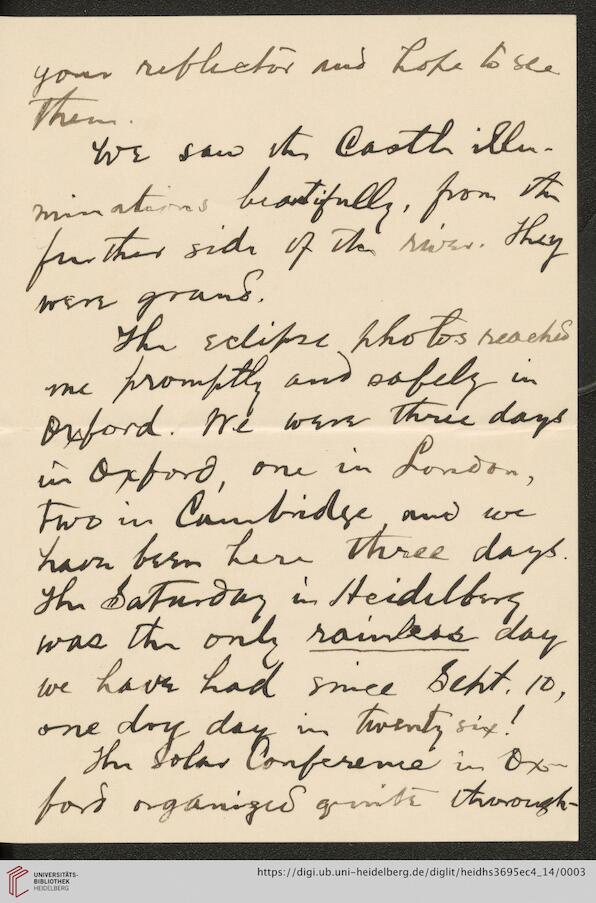 your reflector and hope to see
them.
We saw the Castle illu-
minations beautifully, from the
further side of the river. They
were grand.
The eclipse photos reached
me promptly and safely in
Oxford. We were three days
in Oxford, one in London,
two in Cambridge and we
have been here three days.
The Saturday in Heidelberg
was the only rainless day
we have had since Sept. 10,
one dry day in twenty six!
The Solar Conference in Ox-
ford organized quite thorough-
UNIVERSITÄTS-
BIBLIOTHEK
HEIDELBERG
https://digi.ub.uni-heidelberg.de/diglit/heidhs3695ec4_14/0003